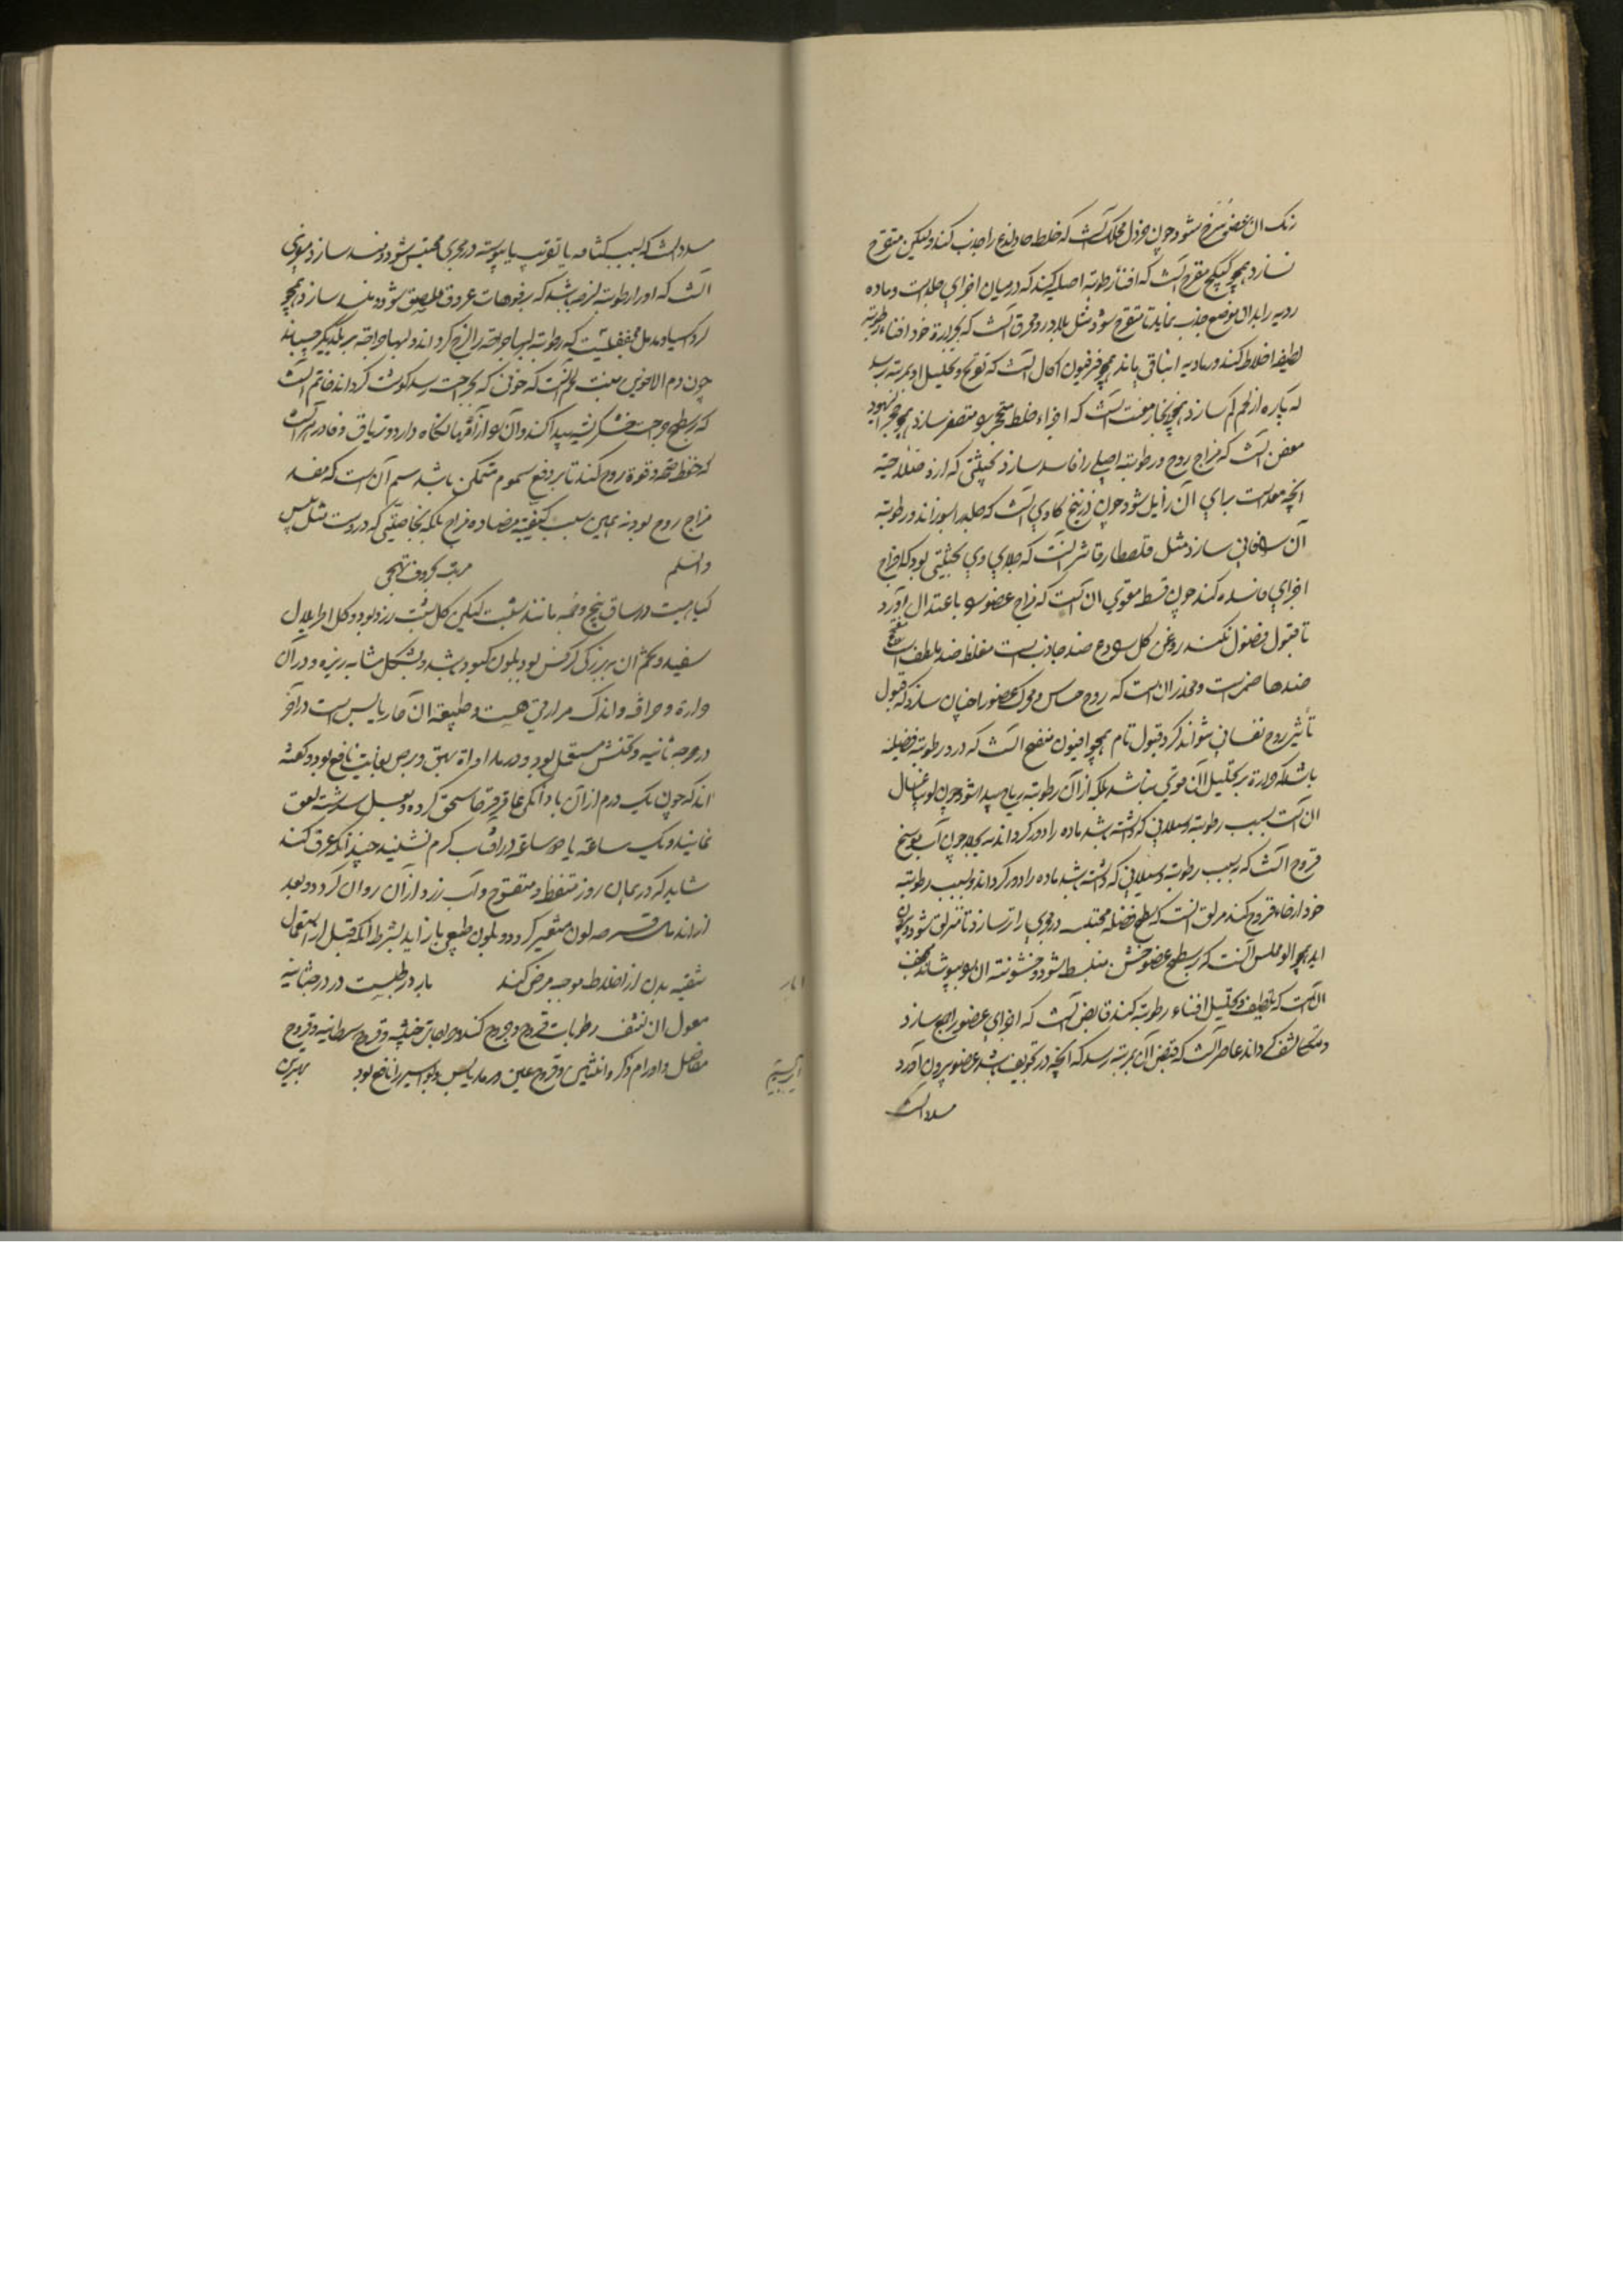 رنک ان عضو سرخ شود چون خردل محکک آنست که خلط حاد لذاع را جذب کند ولیکن متقرح
نسازد همچو کبیکج مقرح آنست که افناء رطوبته اصلیه کند که در میان اجزای جلدست و ماده
ردیه را بدان موضع جذب نماید تا متقرح شود مثل بلادر و محرق آنست که بحرارة خود افناء رطوبته
لطیفه اخلاط کند و رمادیه باقی ماند همچو فرفیون اکال آنست که تقریح و تحلیل او بمرتبه رسد
که پاره از لحم کم سازد همچو زنجار مفتت آنست که اجزاء خلط متحجر را متصغر سازد همچو حجر الیهود
معفن آنست که مزاج روح و رطوبته اصلی را فاسد سازد بحیثیتی که از و صلاحیة
انچه معدست برای آن زایل شود چون زرنیخ کاوی آنست که جلد را بسوزاند و رطوبته
آن فانی سازد مثل قلقطار قاشر آنست که جلای وی بحیثیتی بود که اخراج
اجزای فاسده کند چون قسط مقوی ان آنست که مزاج عضو را باعتدال آورد
تا قبول فضول نکند روغن کل رادع ضد جاذبست مغلظ ضد ملطف است
ضد هاضمست و مخدر آن است که روح حساس و محرک عضو را چنان سازد که قبول
تأثیر روح نفسانی نتواند کرد قبول تام همچو افیون منفخ آنست که در و رطوبته فضلیه
باشد که حرارة بر تحلیل آن قوی نباشد بلکه از آن رطوبته ریاح پیدا شود چون لوبیا غسال
ان آنست بسبب رطوبته و سیلانی که داشته باشد ماده را دور کرداند نه بجلا چون آب موسخ
قروح آنست که بسبب رطوبته و سیلانی که داشته باشد ماده را دور کرداند و بسبب رطوبته
خود ارخاء قروح کند مزلق آنست که سطح فضله محتبسه در مجری را تر سازد تا منزلق شود و بیرون
اید همچو الو مملس آنست که بر سطح عضو خشن منبسط شود و خشونته ان را بپوشاند مجفف
ان آنست که بتلطیف و تحلیل افناء رطوبته کند قابض آنست که اجزای عضو را جمع سازد
و متکاثف کرداند عاصر آنست که قبض آن بمرتبه رسد که انچه در تجویف باشد عضو بیرون آورد
مسدد آنست
مسدد آنست که بسبب کثافه یا تغریه یا یبوسته در مجری محتبس شود و سد سازد مغری
آنست که او را رطوبته لزجه باشد که بر فوهات عروق ملتصق شود و منسد سازد همچو
مدمل مجففیست که رطوبته لبهای جراحته را لزج کرداند و لبهای جراحته بر یکدیکر چسباند
چون دم الاخوین منبت لحم آنست که خونی که بجراحت رسد کوشت کرداند خاتم آنست
که بر سطح جراحت خشک ریشه پیدا کند و آن را از آفتها نکاه دارد و تریاق و فادزهر آنست
که حفظ صحة و قوة روح کند تا بر دفع سموم متمکن باشد سم آن است که مفسد
مزاج روح بود نه بهمین سبب کیفیته مضاده مزاج بلکه بخاصیتی که دروست مثل بیش
والسلم مرتب بحروف تهجی
کیاهیست در ساق و بیخ و خمه مانند شبت لیکن کل شبت زرد بود و کل اطریلال
سفید و تخم آن ببزرکی کرفس بود بلون کبود باشد و بشکل مشابه ریزه و در آن
حرارة و حرافه و اندک مرارتی هست و طبیعة آن حار یابس است در آخر
درجه ثانیه و تخمش مستعمل بود و در مداواة بهق و برص بغایت نافع بود و کفته
اند که چون یک درم از آن با دانکی عاقرقرحا سحق کرده و بعسل سرشته لعق
نمایند و یک ساعة یا دو ساعة در آفتاب کرم نشیند چندانکه عرق کند
شاید که در همان روز متنفط و متقرح و آب زرد از آن روان کردد و بعد
از اندمال قرصه لون متغیر کردد و بلون طبیعی باز آید بشرط آنکه قبل از استعمال
تنقیه بدن از اخلاط موجبه مرض کنند بارد و رطبست در درجه ثانیه
مغسول ان نشف رطوبات قروح و جروح کند و جراحات خبیثه و قروح سرطانیه و قروح
مفاصل و اورام ذکر و انثیین و قروح عین و رمد یابس و بواسیر را نافع بود بهترین
ابار
ابریسم